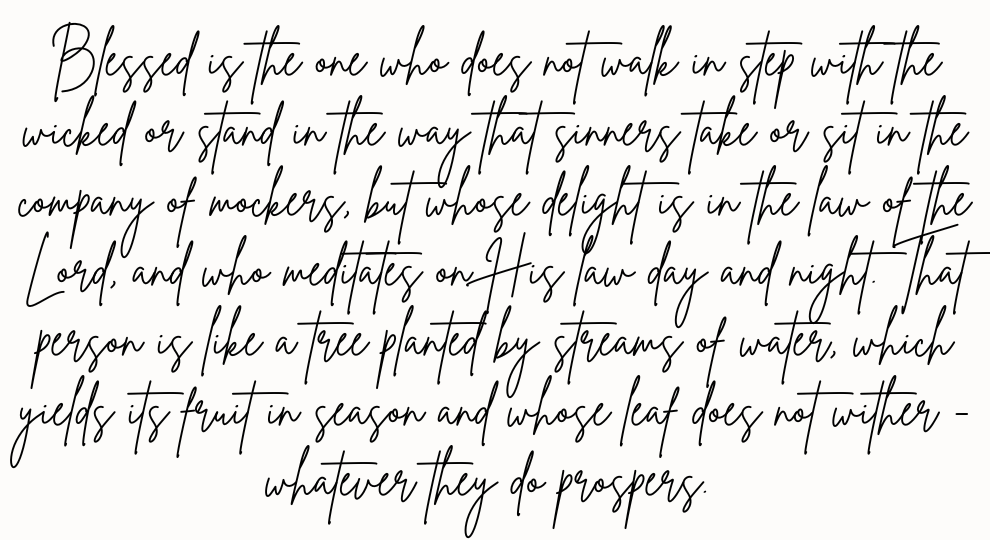 Blessed is the one who does not walk in step with the
wicked or stand in the way that sinners take or sit in the
company of mockers, but whose delight is in the law of the
Lord, and who meditates on His law day and night. That
person is like a tree planted by streams of water, which
yields its fruit in season and whose leaf does not wither -
whatever they do prospers.